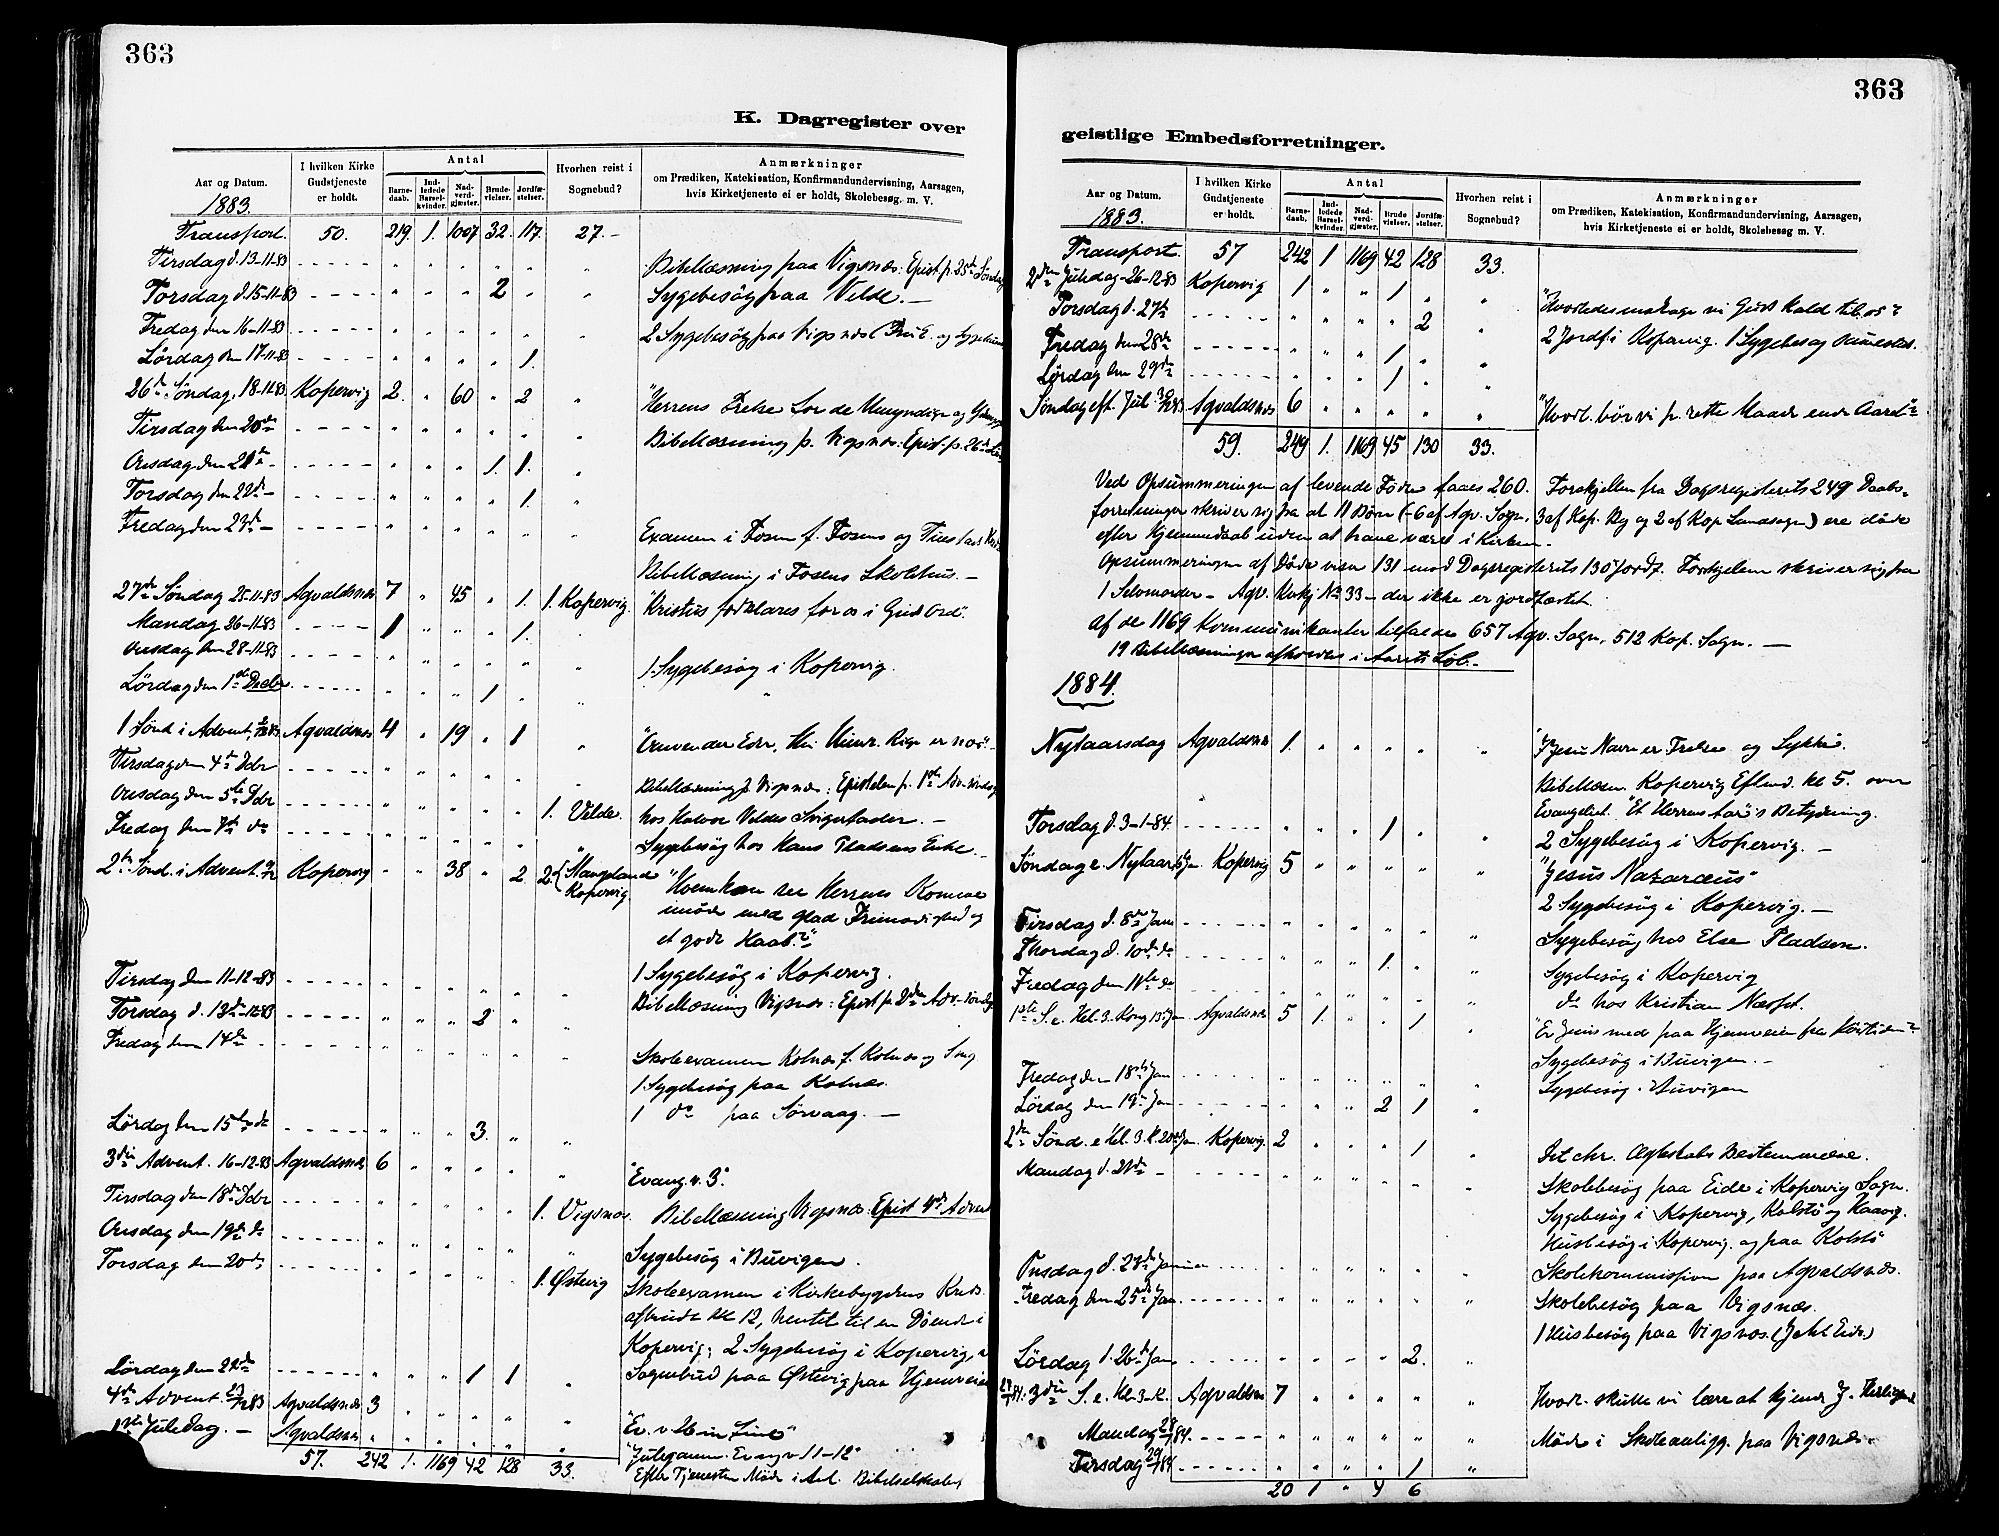 363
K. Dagregister over
Aar og Datum.
I hvilken Kirke Gudstjeneste er holdt.
Antal
Barnedaab.
Indledede Barselkvinder.
Nadverdgjæster.
Brudevielser.
Jordfæstelser.
Hvorhen reist i Sognebud?
Anmærkninger
om Prædiken, Katekisation, Konfirmandundervisning, Aarsagen,
hvis Kirketjeneste ei er holdt, Skolebesøg. m. V.
1883.
Transport. 50. 219. 1. 1007. 32. 117. 27.—
Tirsdag d. 13-11-83 Bibellæsning paa Vigsnæs: Epist. p. 25de Søndag
Torsdag d. 15-11-83 2 Sygebesøg paa Velde.—
Fredag den 16-11-83 2 Sygebesøg paa Vigsnæs
Lördag den 17-11-83 1.
26de Søndag, 18-11-83 Kopervig 2. " 60 " 2 "Herrens Frelse for de
Tirsdag den 20de Bibellæsning p. Vigsnæs: Epist. p. 26de
Onsdag den 21de 1. 1.
Torsdag den 22de 1.
Fredag den 23de Examen i Fosen f. Fosens og
Bibellæsning i Fosens Skolehus.—
27de Søndag 25-11-83 Agvaldsnæs 7 " 45 " 1. 1. Kopervig. "Kristus forklares for os i Guds Ord".
Mandag 26-11-83 1 1.
Onsdag den 28-11-83 1 Sygebesøg i Kopervig.
Lördag den 1ste Decbr. 1
1 Sønd i Advent, 2/12 83 Agvaldsnæs 4 " 19 " 1
Tirsdag den 4de Dcbr Bibellæsning p. Vigsnæs: Epistelen p. 1ste Adv. Søndag
Onsdag den 5te Dcbr 1. Velde. hos Veldes Svigerfader.—
Fredag den 7de do Sygebesøg hos Hans Pladsens Enke.—
2den Sønd. i Advent 9/12 Kopervig " " 38 " 2 2 Stangeland Kopervig "Hvem kan see Herrens Komme
imøde med glad Frimodighed og
et godt Haab?"
Tirsdag den 11-12-83 1 Sygebesøg i Kopervig.
Torsdag d. 13de-12-83 2 Bibellæsning Vigsnæs: Epist p. 2den Adv. Søndag
Fredag den 14de Skoleexamen Kolnæs f. Kolnæs og
1 Sygebesøg paa Kolnæs.
1 do paa Sørvaag.—
Lördag den 15de do 3.
3die Advent. 16-12-83 Agvaldsnæs 6 "Evang. v. 3".
Tirsdag den 18de Dcbr 1. Vigsnæs. Bibellæsning Vigsnæs. Epist 4de Advent
Onsdag den 19de do Sygebesøg i Buvigen.
Torsdag den 20de 1. Østvig Skoleexamen i Kirkebygdens Kreds.
afbrudt Kl 12, hentet til en Döende i
Kopervig; 2 Sygebesøg i Kopervig,
Sognebud paa Østvig paa Hjemveien
Lördag den 22de 1 1
4de Advent. 23/12 83 Agvaldsnæs 3
1ste Juledag.— Agvaldsnæs "Juleevan. Evang v 11-12"
57. 242 1. 1169 42 128 33. Efter Tjenesten Møde i Bibelselskabet
363
geistlige Embedsforretninger.
Aar og Datum.
I hvilken Kirke Gudstjeneste er holdt.
Antal
Barnedaab.
Indledede Barselkvinder.
Nadverdgjæster.
Brudevielser.
Jordfæstelser.
Hvorhen reist i Sognebud?
Anmærkninger
om Prædiken, Katekisation, Konfirmandundervisning, Aarsagen,
hvis Kirketjeneste ei er holdt, Skolebesøg m. V.
1883.
Transport. 57 242 1 1169 42 128 33.
2den Juledag-26-12-83 Kopervig 1 " " 1 " "Hvorledes modtage vi Guds Kald til os?
Torsdag d. 27de 2 2 Jordf. i Kopervig. 1 Sygebesøg
Fredag den 28de 1
Lørdag den 29de 1
Søndag eft. Jul. 30/12 83 Agvaldsnæs 6 "Hvorl. bør vi p. rette Maade ende Aaret"?
59. 249 1. 1169 45 130 33.
Ved Opsummeringen af levende Fødte faaes 260. Forskjellen fra Dagregisterets 249 Daabs-
forretninger skriver sig fra at 11 Børn (-6 af Agv. Sogn, 3 af Kop. By og 2 af Kop Landsogn) ere døde
efter Hjemmedaab uden at have været i Kirken.
Opsummeringen af Døde viser 131 mod Dagregisterets 130 Jordf. Forskjellen skriver sig fra
1 Selvmorder - Agv. No 33 - der ikke er jordfæstet.
Af de 1169 Kommunikanter tilfalde 657 Agv. Sogn, 512 Kop. Sogn.—
19 Bibellæsninger afholdtes i Aarets Løb.—
1884.
Nytaarsdag Agvaldsnæs 1. "I Jesu Navn er Frelse og Lykke.
Bibellæsn. Kopervig Efterm. Kl 5. over
Evangeliet. "Et Herrens Aar's Betydning.
Torsdag d. 3-1-84. 1 2 Sygebesøg i Kopervig.—
Søndag e. Nytaar 6/Jan Kopervig 5 "Jesus Nazaræus"
2 Sygebesøg i Kopervig.—
Tirsdag d. 8de Jan Sygebesøg hos Else Pladsen.
Thorsdag d. 10de do 1. Sygebesøg i Kopervig
Fredag den 11te do do hos Kristian
1ste S. e. Hel. 3. Kong 13 Jan Agvaldsnæs 5 1. " " 1 "Er Jesus med paa Hjemveien fra
Sygebesøg i Buvigen.—
Fredag den 18de Jan Sygebesøg i Buvigen
Lørdag den 19de Jan 2 1
2den Sønd. e Hel. 3. K. 20de Jan Kopervig. 2 1 Det chr. Ægteskabs Bestemmelse.
Mandag d. 21de — Skolebesøg paa Eide i Kopervig Sogn.
Sygebesøg i Kopervig, Kolstø og
Husbesøg i Kopervig og paa Kolstø
Onsdag d. 23de Januar Skolekommission paa Agvaldsnæs.
Fredag den 25de Jan. Skolebesøg paa Vigsnæs.
1 Husbesøg paa Vigsnæs.
Lördag d. 26de Jan 2.
27/1 84. 3die S. e. Hl. 3 K. Agvaldsnæs 7 Hvorl. skulle vi lære at kjende J. Herlighed
Mandag 28/1 84. Møde i Skoleanligg. paa Vigsnæs.
Tirsdag 29/1 84 1
20 1 " 4 6